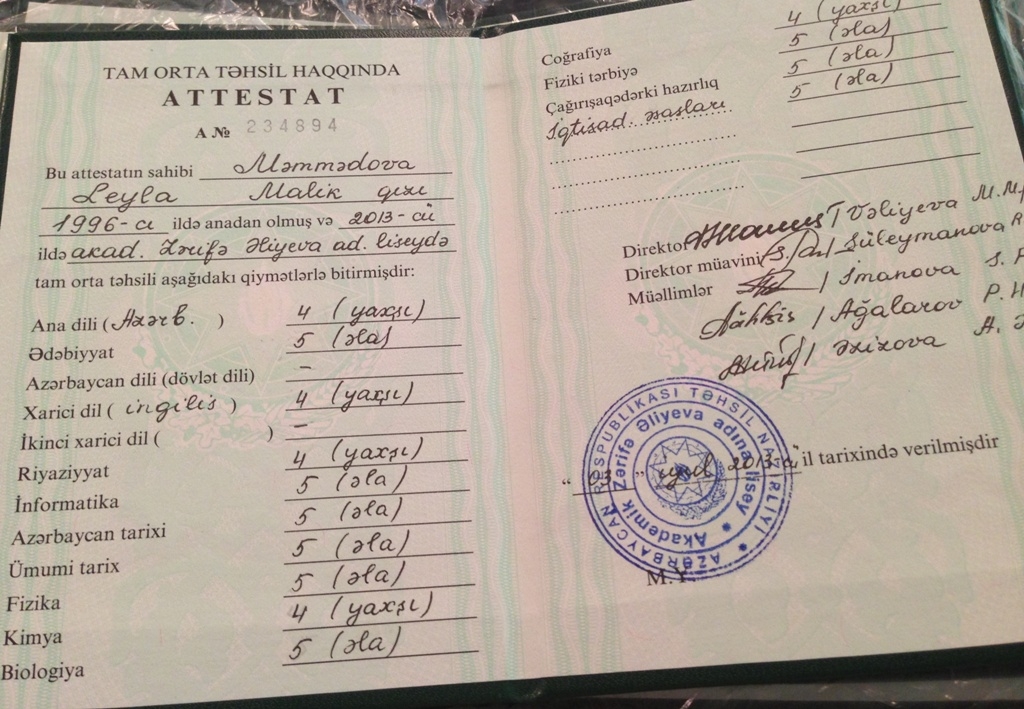 TAM ORTA TƏHSİL HAQQINDA
ATTESTAT
A № 234894
Bu attestatın sahibi Məmmədova
Leyla Malik qızı
1996-cı ildə anadan olmuş və 2013-cü
ildə akad. Zərifə Əliyeva ad. liseydə
tam orta təhsili aşağıdakı qiymətlərlə bitirmişdir:
Ana dili (Azərb. ) 4 (yaxşı)
Ədəbiyyat 5 (əla)
Azərbaycan dili (dövlət dili) –
Xarici dil ( ingilis ) 4 (yaxşı)
İkinci xarici dil ( ) –
Riyaziyyat 4 (yaxşı)
İnformatika 5 (əla)
Azərbaycan tarixi 5 (əla)
Ümumi tarix 5 (əla)
Fizika 5 (əla)
Kimya 4 (yaxşı)
Biologiya 5 (əla)
Coğrafiya 4 (yaxşı)
Fiziki tərbiyə 5 (əla)
Çağırışaqədərki hazırlıq 5 (əla)
İqtisad. əsasları 5 (əla)
Direktor Vəliyeva M.M.
Direktor müavini Süleymanova R
Müəllimlər İmanova S.
Ağalarov P.H
Əzizova A.
AZƏRBAYCAN RESPUBLİKASI TƏHSİL NAZİRLİYİ
Akademik Zərifə Əliyeva adına lisey
" 03 " iyul 2013-cü il tarixində verilmişdir
M.Y.